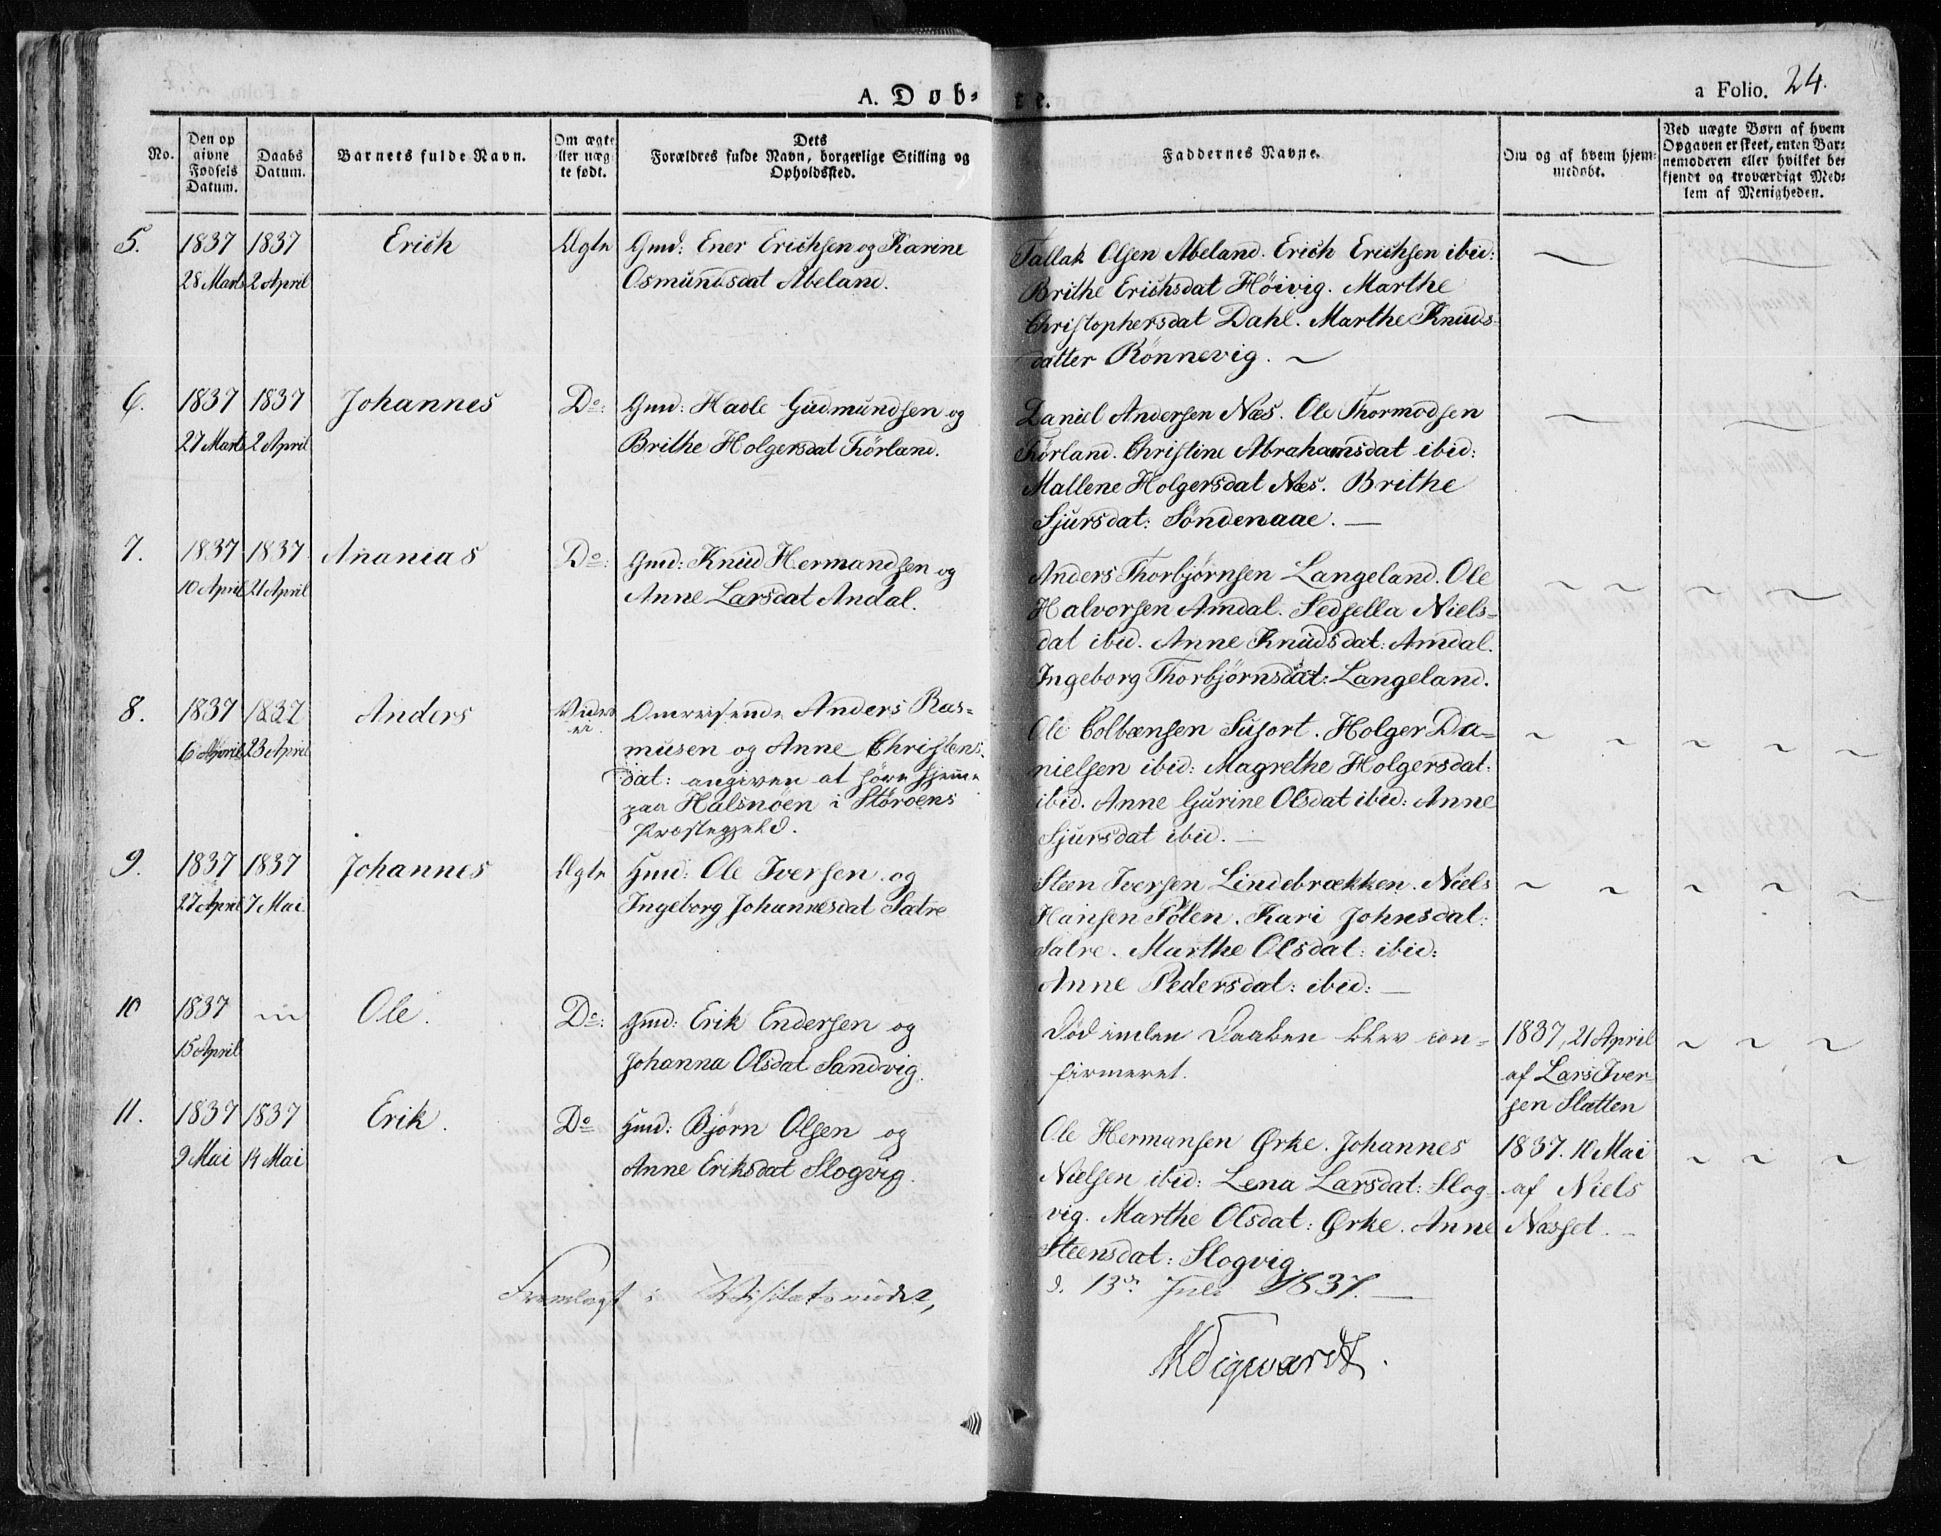 A. Døbte.
a Folio. 24.
No.
Den op
givne
Fødsels
Datum.
Daabs
Datum.
Barnets fulde Navn.
Om ægte
eller uæg-
te født.
Dets
Forældres fulde Navn, borgerlige Stilling og
Opholdssted.
Faddernes Navne.
Om og af hvem hjem-
medøbt.
Ved uægte Børn af hvem
Opgaven er skeet, enten Bar-
nemoderen eller hvilket be-
kjendt og troværdigt Med-
lem af Menigheden.
5. 1837 1837 Erich Ægte Gmd: Ener Erichsen og Karine
28 Marts 2 April Osmundsdat Abeland.
Tallak Olsen Abeland. Erich Erichsen ibid:
Brithe Erichsdat Höivig. Marthe
Christophersdat Dahl. Marthe Knuds-
datter Rönnevig. ~
6. 1837 1837 Johannes Do: Gmd: Hadle Gudmundsen og
27 Marts 2 April Brithe Holgersdat Förland.
Daniel Andersen Næs. Ole Thormodsen
Førland. Christine Abrahamsdat ibid:
Mallene Holgersdat Næs. Brithe
Sjursdat: Søndenaae. —
7. 1837 1837 Ananias Do: Gmd: Knud Hermandsen og
10 April 21 April Anne Larsdat Amdal.
Anders Thorbjørnsen Langeland. Ole
Halvorsen Amdal. Sedsella Niels-
dat ibid. Anne Knudsdat: Amdal.
Ingeborg Thorbjørnsdat: Langeland.
8. 1837 1837 Anders Omreisende Anders Ras-
6 April 23 April musen og Anne Christens-
dat: angiven at høre hjemme
paa Halsnøen i Størøens
Præstegjeld.
Ole Colbænsen Susort. Holger Da-
nielsen ibid: Magrethe Holgersdat:
ibid. Anne Gurine Olsdat ibid: Anne
Sjursdat ibid. —
9. 1837 1837 Johannes Ægte Gmd: Ole Iversen og
27 April 7 Mai Ingeborg Johannesdat Satre
Steen Iversen Lindebrækken. Niels
Hansen Folen. Kari Johnsdat:
Satre. Marthe Olsdat: ibid:
Anne Pedersdat: ibid: —
10 1837 Ole. Do: Gmd: Erik Endersen og
15 April Johanna Olsdat Sandvig.
Død inden Daaben blev con-
firmeret.
1837, 21 April
af Lars Iver-
sen Slatten
11. 1837 1837 Erik. Do Gmd: Bjørn Olsen og
9 Mai 14 Mai Anne Eriksdat Slogvig.
Ole Hermansen Ørke. Johannes
Nielsen ibid: Lena Larsdat: Slog-
vig. Marthe Olsdat: Ørke. Anne
Steensdat: Slogvig.
1837. 10 Mai
af Niels
Næsset. —
Fremlagt i Visitatsmødet, d. 13de Juli 1837. —